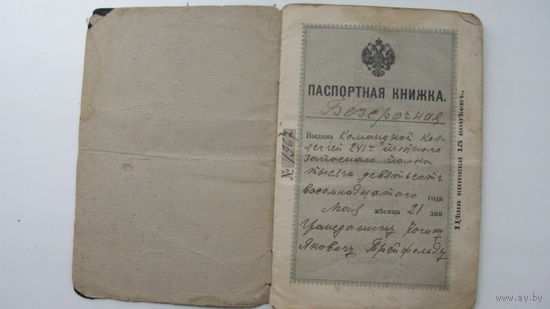 ПАСПОРТНАЯ КНИЖКА.
Безсрочная
Выдана Командной Кол-
легией 241го пехотного
запасного полка
тысяча девятьсот
восемнадцатого года
Мая мѣсяца 21 дня
Гражданину
Яновичу Трейфельду
№ 1967
Цѣна книжки 15 копѣекъ.
ay.by